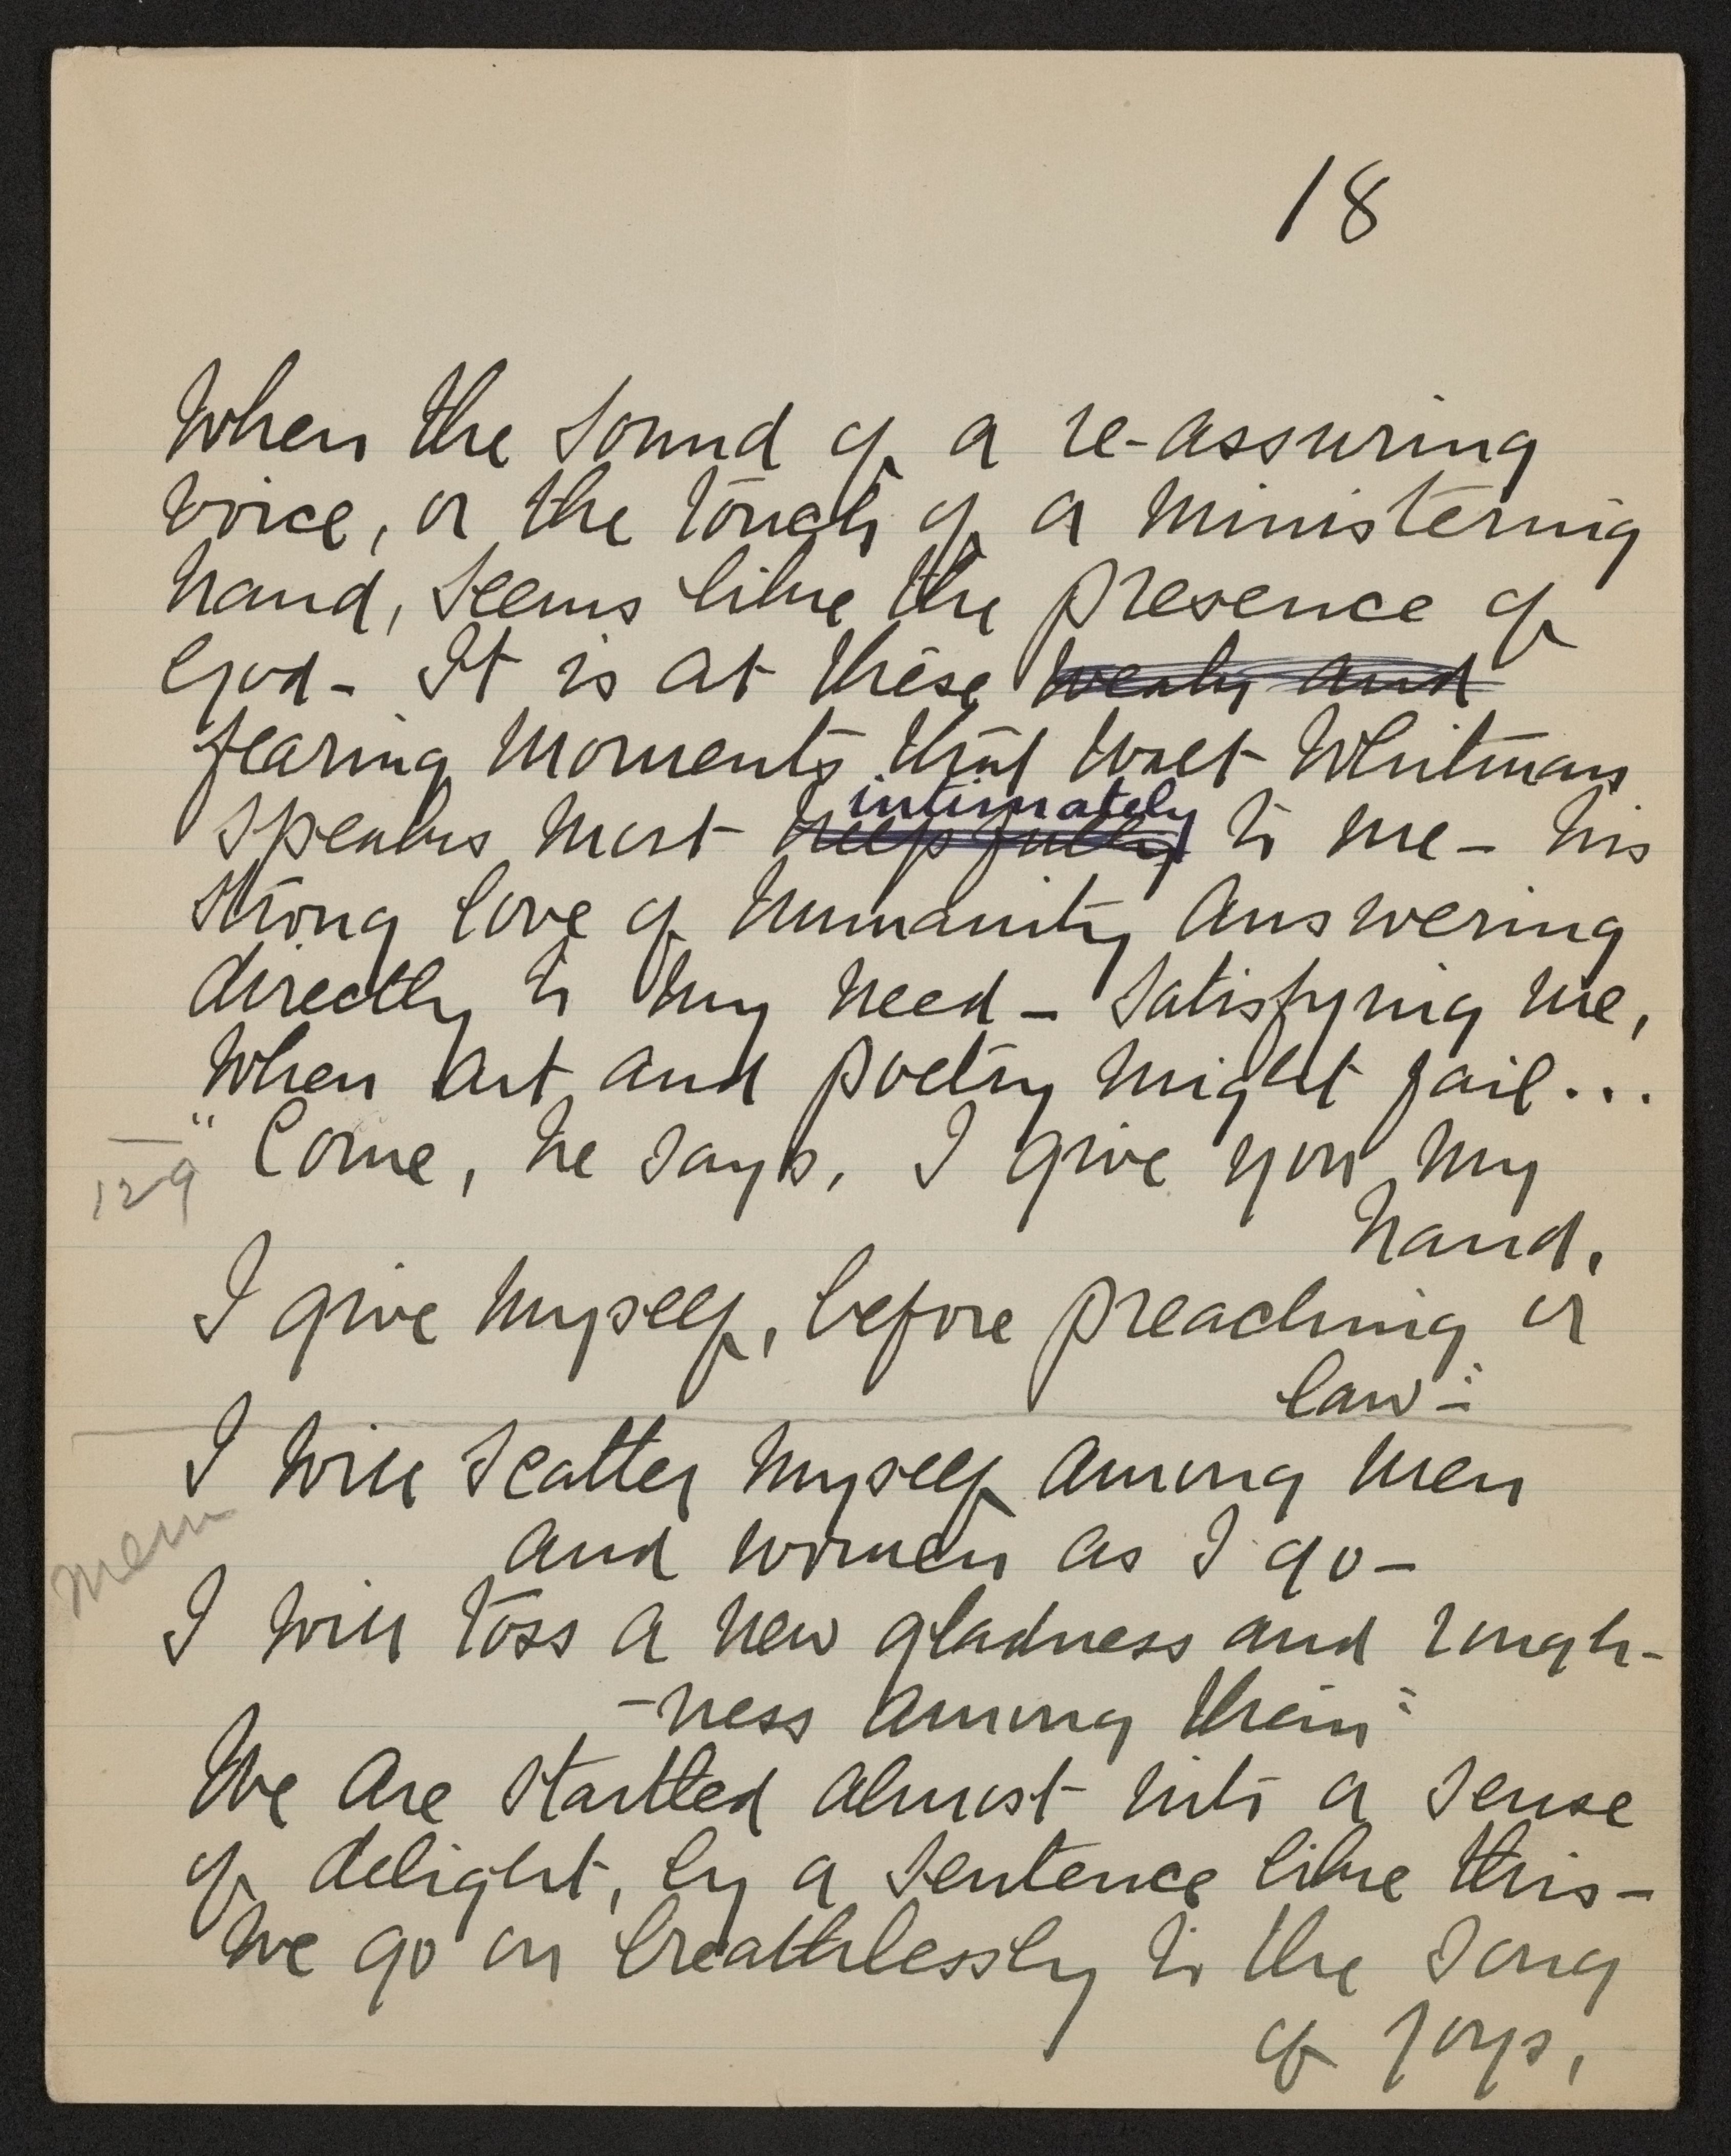 18
When the sound of a re-assuring
voice, or the touch of a ministering
hand, seems like the presence of
God - It is at these weak and
fearing moments that Walt Whitman
intimately
speaks most helpfully to me - his
strong love of humanity answering
directly to my need - satisfying me,
when art and poetry might fail...
" Come, he says, I give you my
129
hand,
I give myself, before preaching or
law -"
I will scatter myself among men
and women as I go -
mem
I will toss a new gladness and rough-
-ness among them"
We are startled almost into a sense
of delight, by a sentence like this -
We go on breathlessly to the song
of joys,